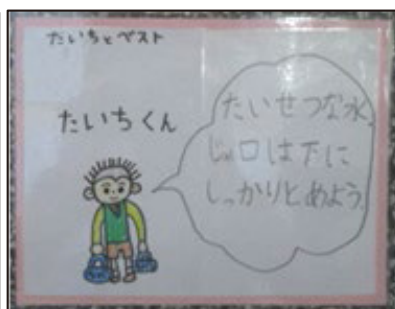 たいちとベスト
たいちくん
たいせつな水。
じゃ口は下に
しっかりとめよう。